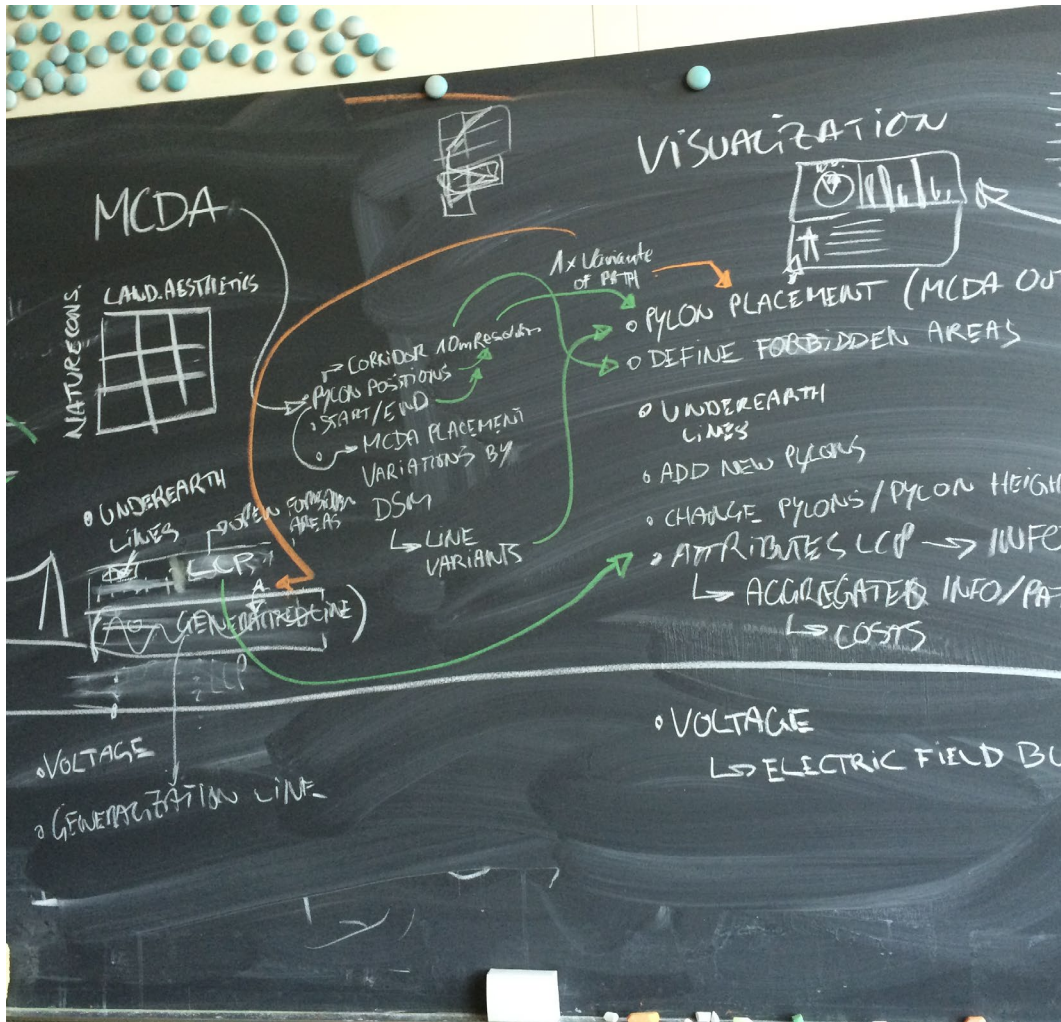 MCDA
LAND.AESTHETICS
NATURECONS.
CORRIDOR 10m Resolution
PYLON POSITIONS
START/END
MCDA PLACEMENT
VARIATIONS BY
DSM
LINE
VARIANTS
UNDEREARTH
LINES
OPEN FORBIDDEN
AREAS
LCP
(GENERALIZED LINE)
LCP
VOLTAGE
GENERALIZATION LINE
VISUALIZATION
1x Variante
OF PATH
PYLON PLACEMENT (MCDA OUT
DEFINE FORBIDDEN AREAS
UNDEREARTH
LINES
ADD NEW PYLONS
CHANGE PYLONS/PYLON HEIGH
ATTRIBUTES LCP → INFO
AGGREGATED INFO/PA
COSTS
VOLTAGE
ELECTRIC FIELD BU